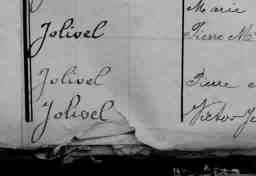 Marie
Jolivel Pierre M
Jolivel Pierre
Jolivel Victor Je